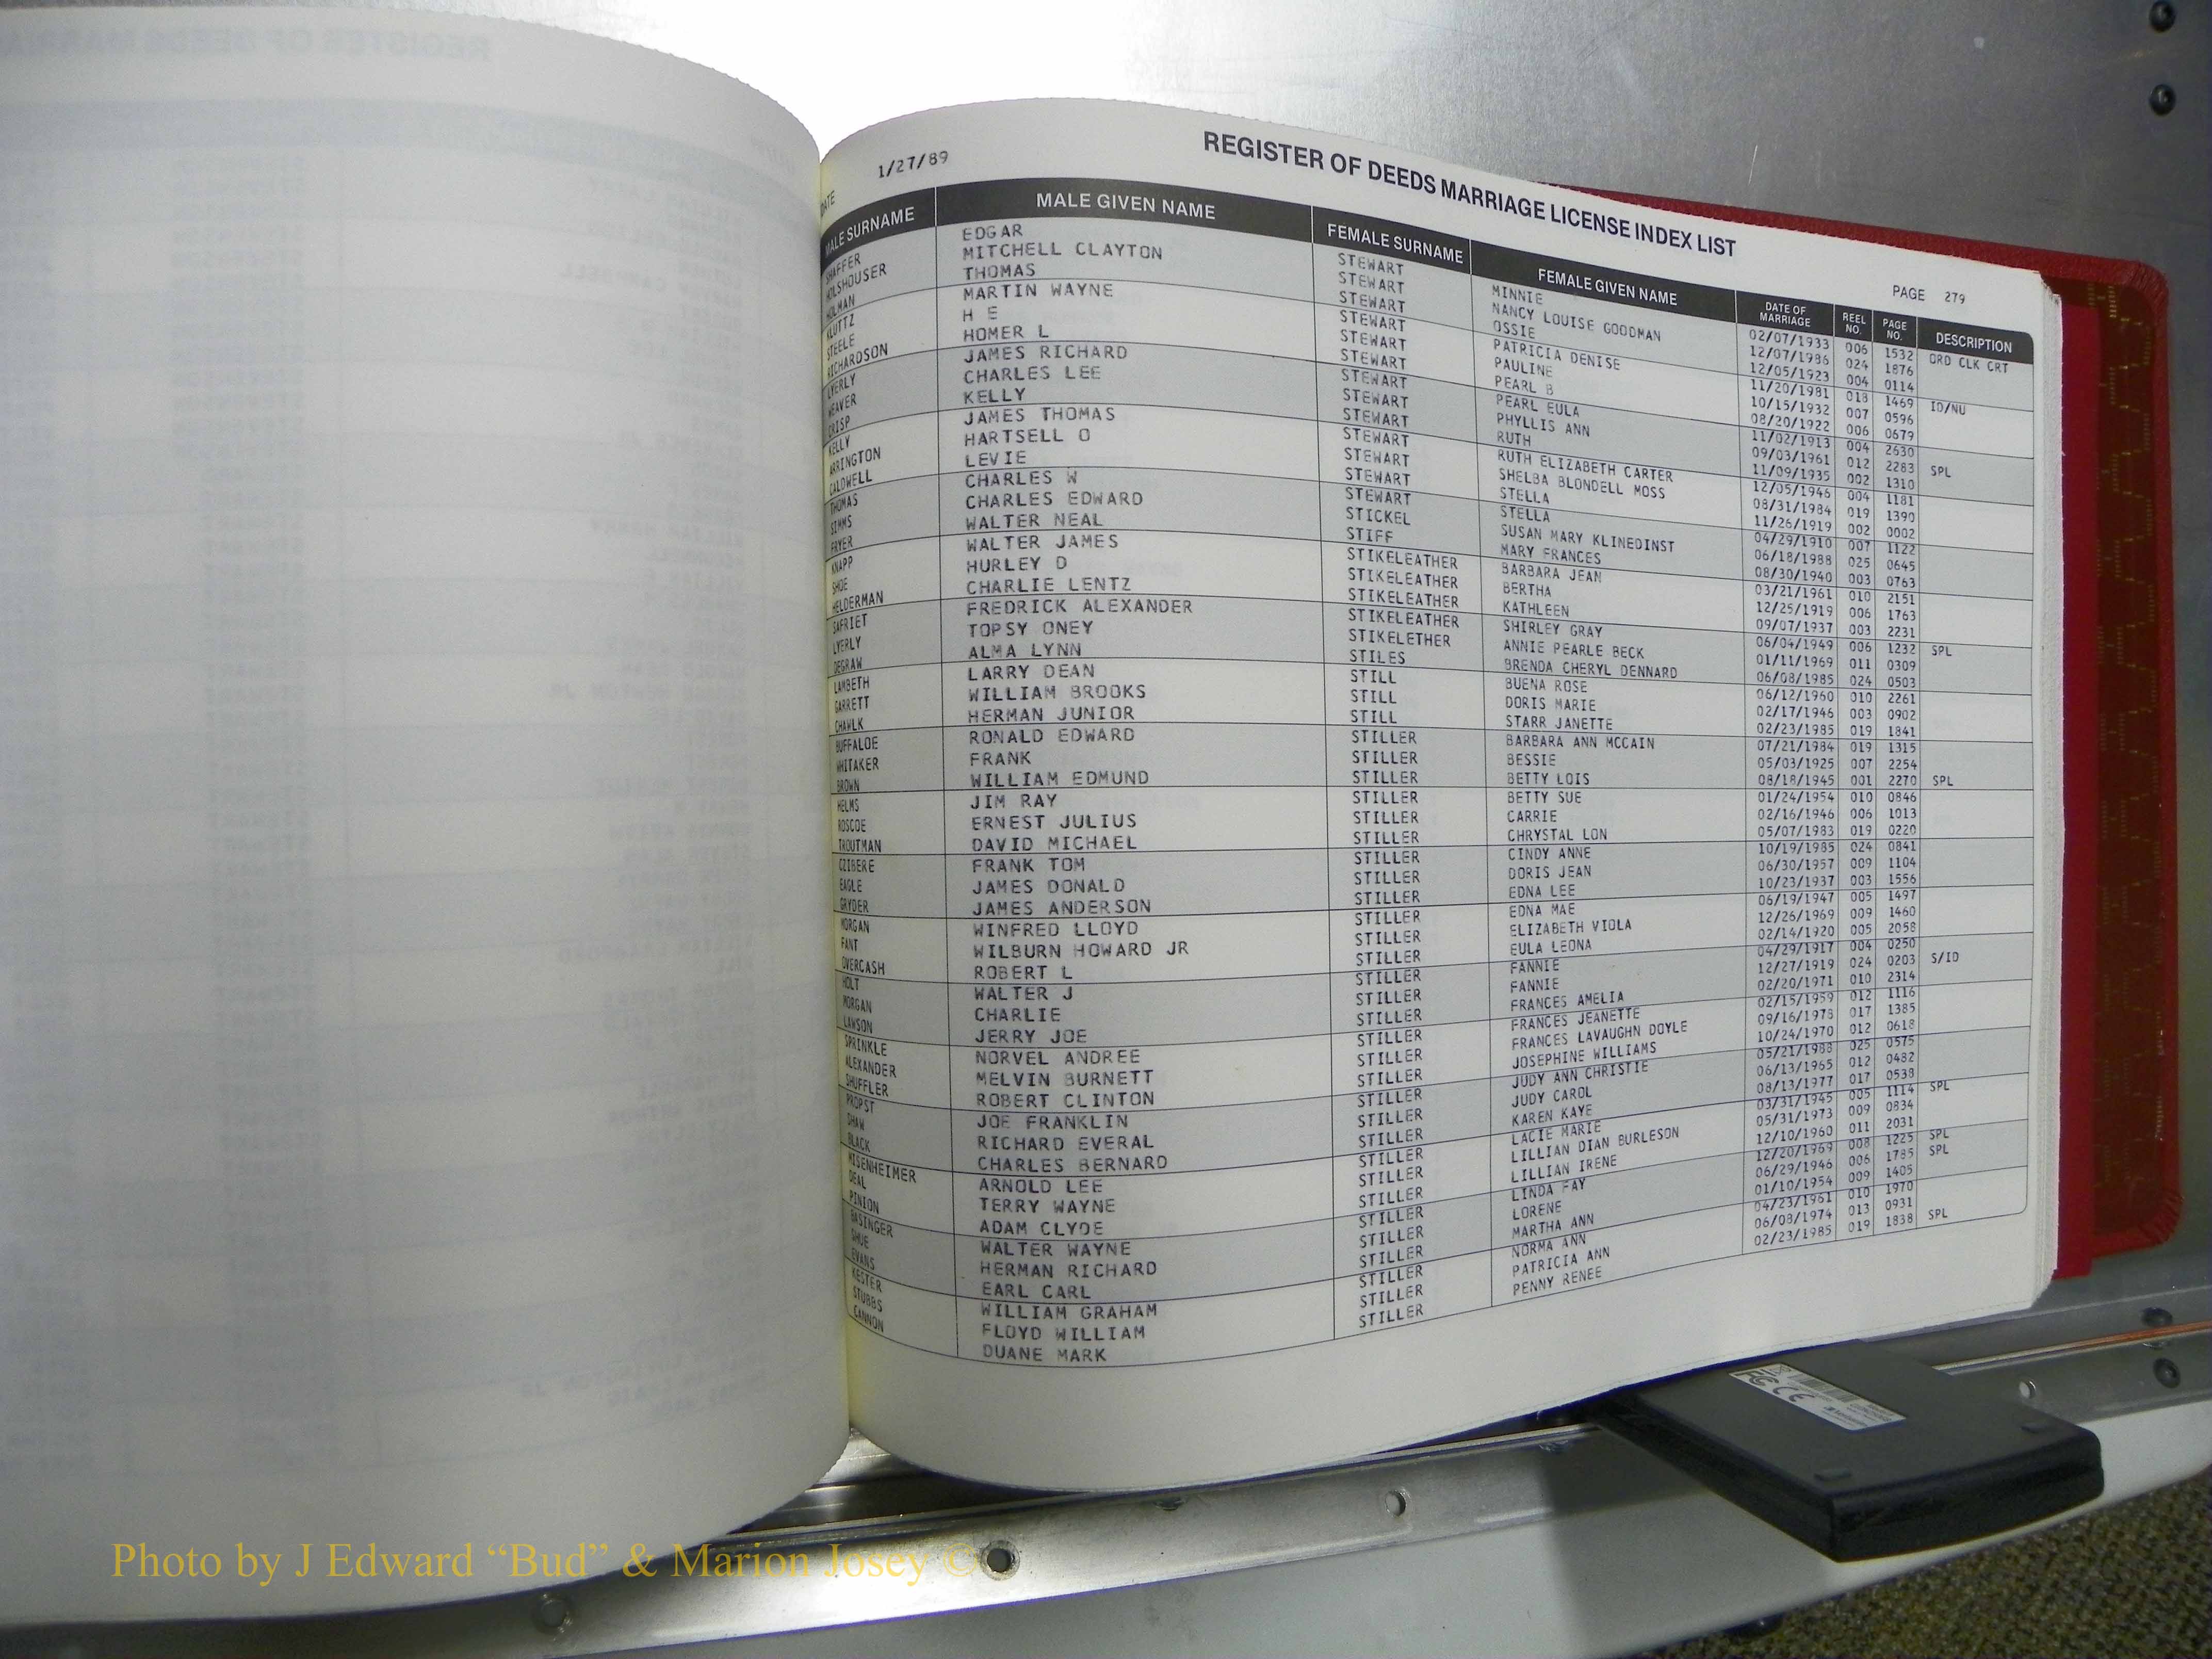 DATE 1/27/89
REGISTER OF DEEDS MARRIAGE LICENSE INDEX LIST
PAGE 279
MALE SURNAME MALE GIVEN NAME FEMALE SURNAME FEMALE GIVEN NAME DATE OF MARRIAGE REEL NO. PAGE NO. DESCRIPTION
SHAFFER EDGAR STEWART MINNIE 02/07/1933 006 1532 ORD CLK CRT
HOLSHOUSER MITCHELL CLAYTON STEWART NANCY LOUISE GOODMAN 12/07/1986 024 1876
HOLMAN THOMAS STEWART OSSIE 12/05/1923 004 0114
KLUTTZ MARTIN WAYNE STEWART PATRICIA DENISE 11/20/1981 018 1469 ID/NU
STEELE H E STEWART PAULINE 10/15/1932 007 0596
RICHARDSON HOMER L STEWART PEARL B 08/20/1922 006 0679
LYERLY JAMES RICHARD STEWART PEARL EULA 11/02/1913 004 2630
WEAVER CHARLES LEE STEWART PHYLLIS ANN 09/03/1961 012 2283 SPL
CRISP KELLY STEWART RUTH 11/09/1935 002 1310
KELLY JAMES THOMAS STEWART RUTH ELIZABETH CARTER 12/05/1946 004 1181
ARRINGTON HARTSELL O STEWART SHELBA BLONDELL MOSS 08/31/1984 019 1390
CALDWELL LEVIE STEWART STELLA 11/26/1919 002 0002
THOMAS CHARLES W STEWART STELLA 04/29/1910 007 1122
SIMMS CHARLES EDWARD STICKEL SUSAN MARY KLINEDINST 06/18/1988 025 0645
FRYER WALTER NEAL STIFF MARY FRANCES 08/30/1940 003 0763
KNAPP WALTER JAMES STIKELEATHER BARBARA JEAN 03/21/1961 010 2151
SHOE HURLEY D STIKELEATHER BERTHA 12/25/1919 006 1763
HELDERMAN CHARLIE LENTZ STIKELEATHER KATHLEEN 09/07/1937 003 2231
SAFRIET FREDRICK ALEXANDER STIKELEATHER SHIRLEY GRAY 06/04/1949 006 1232 SPL
LYERLY TOPSY ONEY STIKELETHER ANNIE PEARLE BECK 01/11/1969 011 0309
DEGRAW ALMA LYNN STILES BRENDA CHERYL DENNARD 06/08/1985 024 0503
LAMBETH LARRY DEAN STILL BUENA ROSE 06/12/1960 010 2261
GARRETT WILLIAM BROOKS STILL DORIS MARIE 02/17/1946 003 0902
CHAWLK HERMAN JUNIOR STILL STARR JANETTE 02/23/1985 019 1841
BUFFALOE RONALD EDWARD STILLER BARBARA ANN MCCAIN 07/21/1984 019 1315
WHITAKER FRANK STILLER BESSIE 05/03/1925 007 2254
BROWN WILLIAM EDMUND STILLER BETTY LOIS 08/18/1945 001 2270 SPL
HELMS JIM RAY STILLER BETTY SUE 01/24/1954 010 0846
ROSCOE ERNEST JULIUS STILLER CARRIE 02/16/1946 006 1013
TROUTMAN DAVID MICHAEL STILLER CHRYSTAL LON 05/07/1983 019 0220
CZIBERE FRANK TOM STILLER CINDY ANNE 10/19/1985 024 0841
EAGLE JAMES DONALD STILLER DORIS JEAN 06/30/1957 009 1104
GRYDER JAMES ANDERSON STILLER EDNA LEE 10/23/1937 003 1556
MORGAN WINFRED LLOYD STILLER EDNA MAE 06/19/1947 005 1497
FANT WILBURN HOWARD JR STILLER ELIZABETH VIOLA 12/26/1969 009 1460
OVERCASH ROBERT L STILLER EULA LEONA 02/14/1920 005 2058
HOLT WALTER J STILLER FANNIE 04/29/1917 004 0250
MORGAN CHARLIE STILLER FANNIE 12/27/1919 024 0203 S/ID
LAWSON JERRY JOE STILLER FRANCES AMELIA 02/20/1971 010 2314
SPRINKLE NORVEL ANDREE STILLER FRANCES JEANETTE 02/15/1959 012 1116
ALEXANDER MELVIN BURNETT STILLER FRANCES LAVAUGHN DOYLE 09/16/1978 017 1385
SHUFFLER ROBERT CLINTON STILLER JOSEPHINE WILLIAMS 10/24/1970 012 0618
PROPST JOE FRANKLIN STILLER JUDY ANN CHRISTIE 05/21/1988 025 0575
SHAW RICHARD EVERAL STILLER JUDY CAROL 06/13/1965 012 0482
BLACK CHARLES BERNARD STILLER KAREN KAYE 08/13/1977 017 0538
MISENHEIMER ARNOLD LEE STILLER LACIE MARIE 03/31/1945 005 1114 SPL
DEAL TERRY WAYNE STILLER LILLIAN DIAN BURLESON 05/31/1973 009 0834
PINION ADAM CLYDE STILLER LILLIAN IRENE 12/10/1960 011 2031
BASINGER WALTER WAYNE STILLER LINDA FAY 12/20/1969 008 1225 SPL
SHUE HERMAN RICHARD STILLER LORENE 06/29/1946 006 1785 SPL
EVANS EARL CARL STILLER MARTHA ANN 01/10/1954 009 1405
KESTER WILLIAM GRAHAM STILLER NORMA ANN 04/23/1961 010 1970
STUBBS FLOYD WILLIAM STILLER PATRICIA ANN 06/08/1974 013 0931
CANNON DUANE MARK STILLER PENNY RENEE 02/23/1985 019 1838 SPL
Photo by J Edward “Bud” & Marion Josey ©